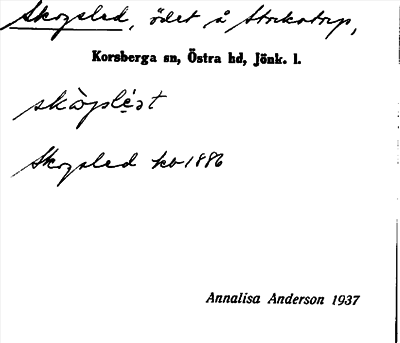 Skogsled, ödet å Stockatorp,
Korsberga sn, Östra hd, Jönk. l.
Skogsled kb 1886
Annalisa Anderson 1937